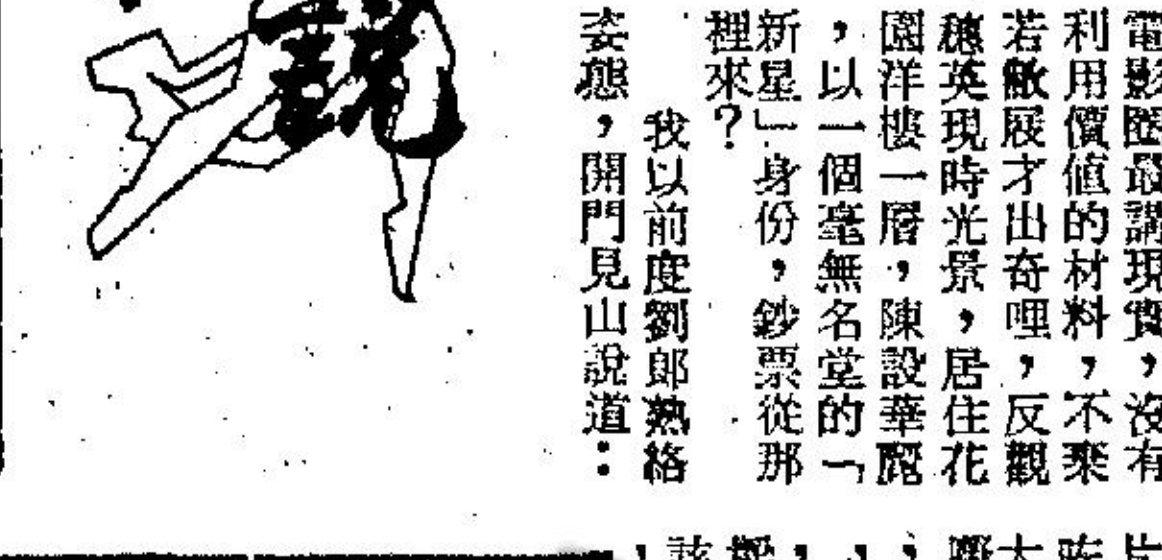 電影圈最講現實,沒有
利用價值的材料,不棄
若敝屣才出奇哩,反觀
穗英現時光景,居住花
園洋樓一層,陳設華麗
,以一個毫無名堂的「
新星」身份,鈔票從那
裡來?
我以前度劉郎熟絡
姿態,開門見山說道: